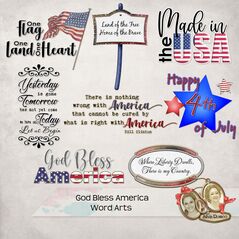 One
Flag
One
Land
One
Heart
Land of the Free
Home of the Brave
Made in
the
USA
Yesterday
is gone
Tomorrow
has not yet come
Today
Let us Begin
There is nothing
wrong with America
that cannot be cured by
what is right with America
Bill Clinton
Happy
4th
of July
God Bless
America
Where Liberty Dwells,
There is my Country.
God Bless America
Word Arts